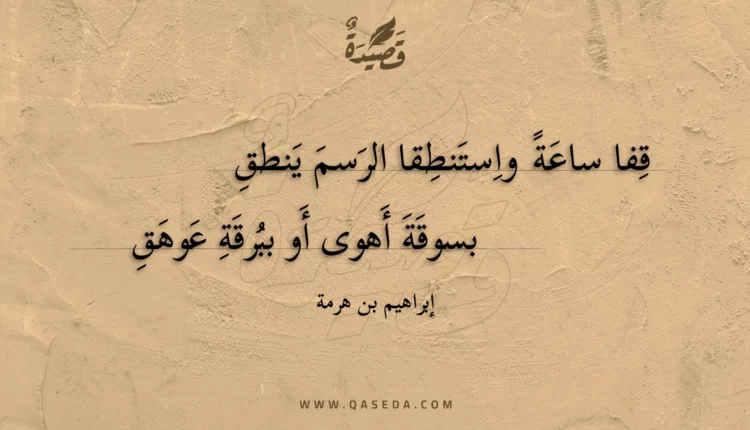 قَصِيدَةٌ
قِفا ساعَةً واِستَنطِقا الرَسمَ يَنطقِ
بسوقَةَ أَهوى أَو ببُرقَةِ عَوهَقِ
إبراهيم بن هرمة
WWW.QASEDA.COM